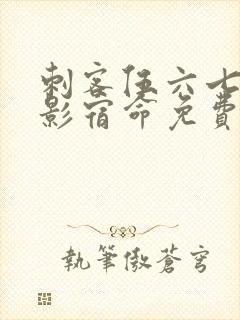 刺客伍六七
影宿命免费
執筆傲蒼穹